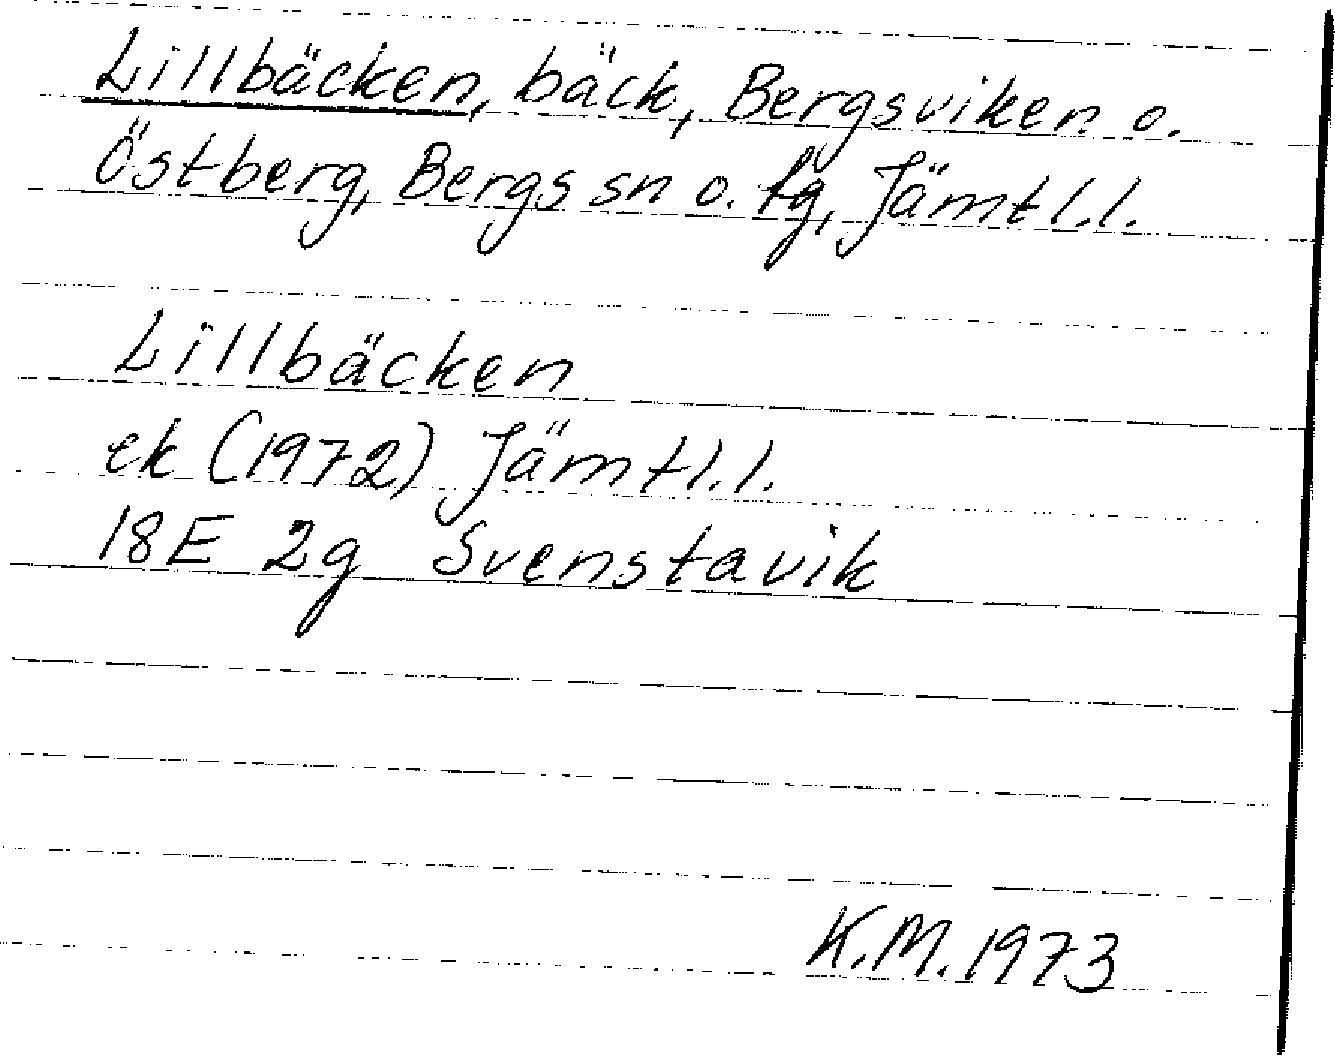 Lillbäcken, bäck, Bergsviken o.
Östberg, Bergs sn o. tg, Jämtl.l.
Lillbäcken
ek (1972) Jämtl.l.
18E 2g Svenstavik
K.M. 1973